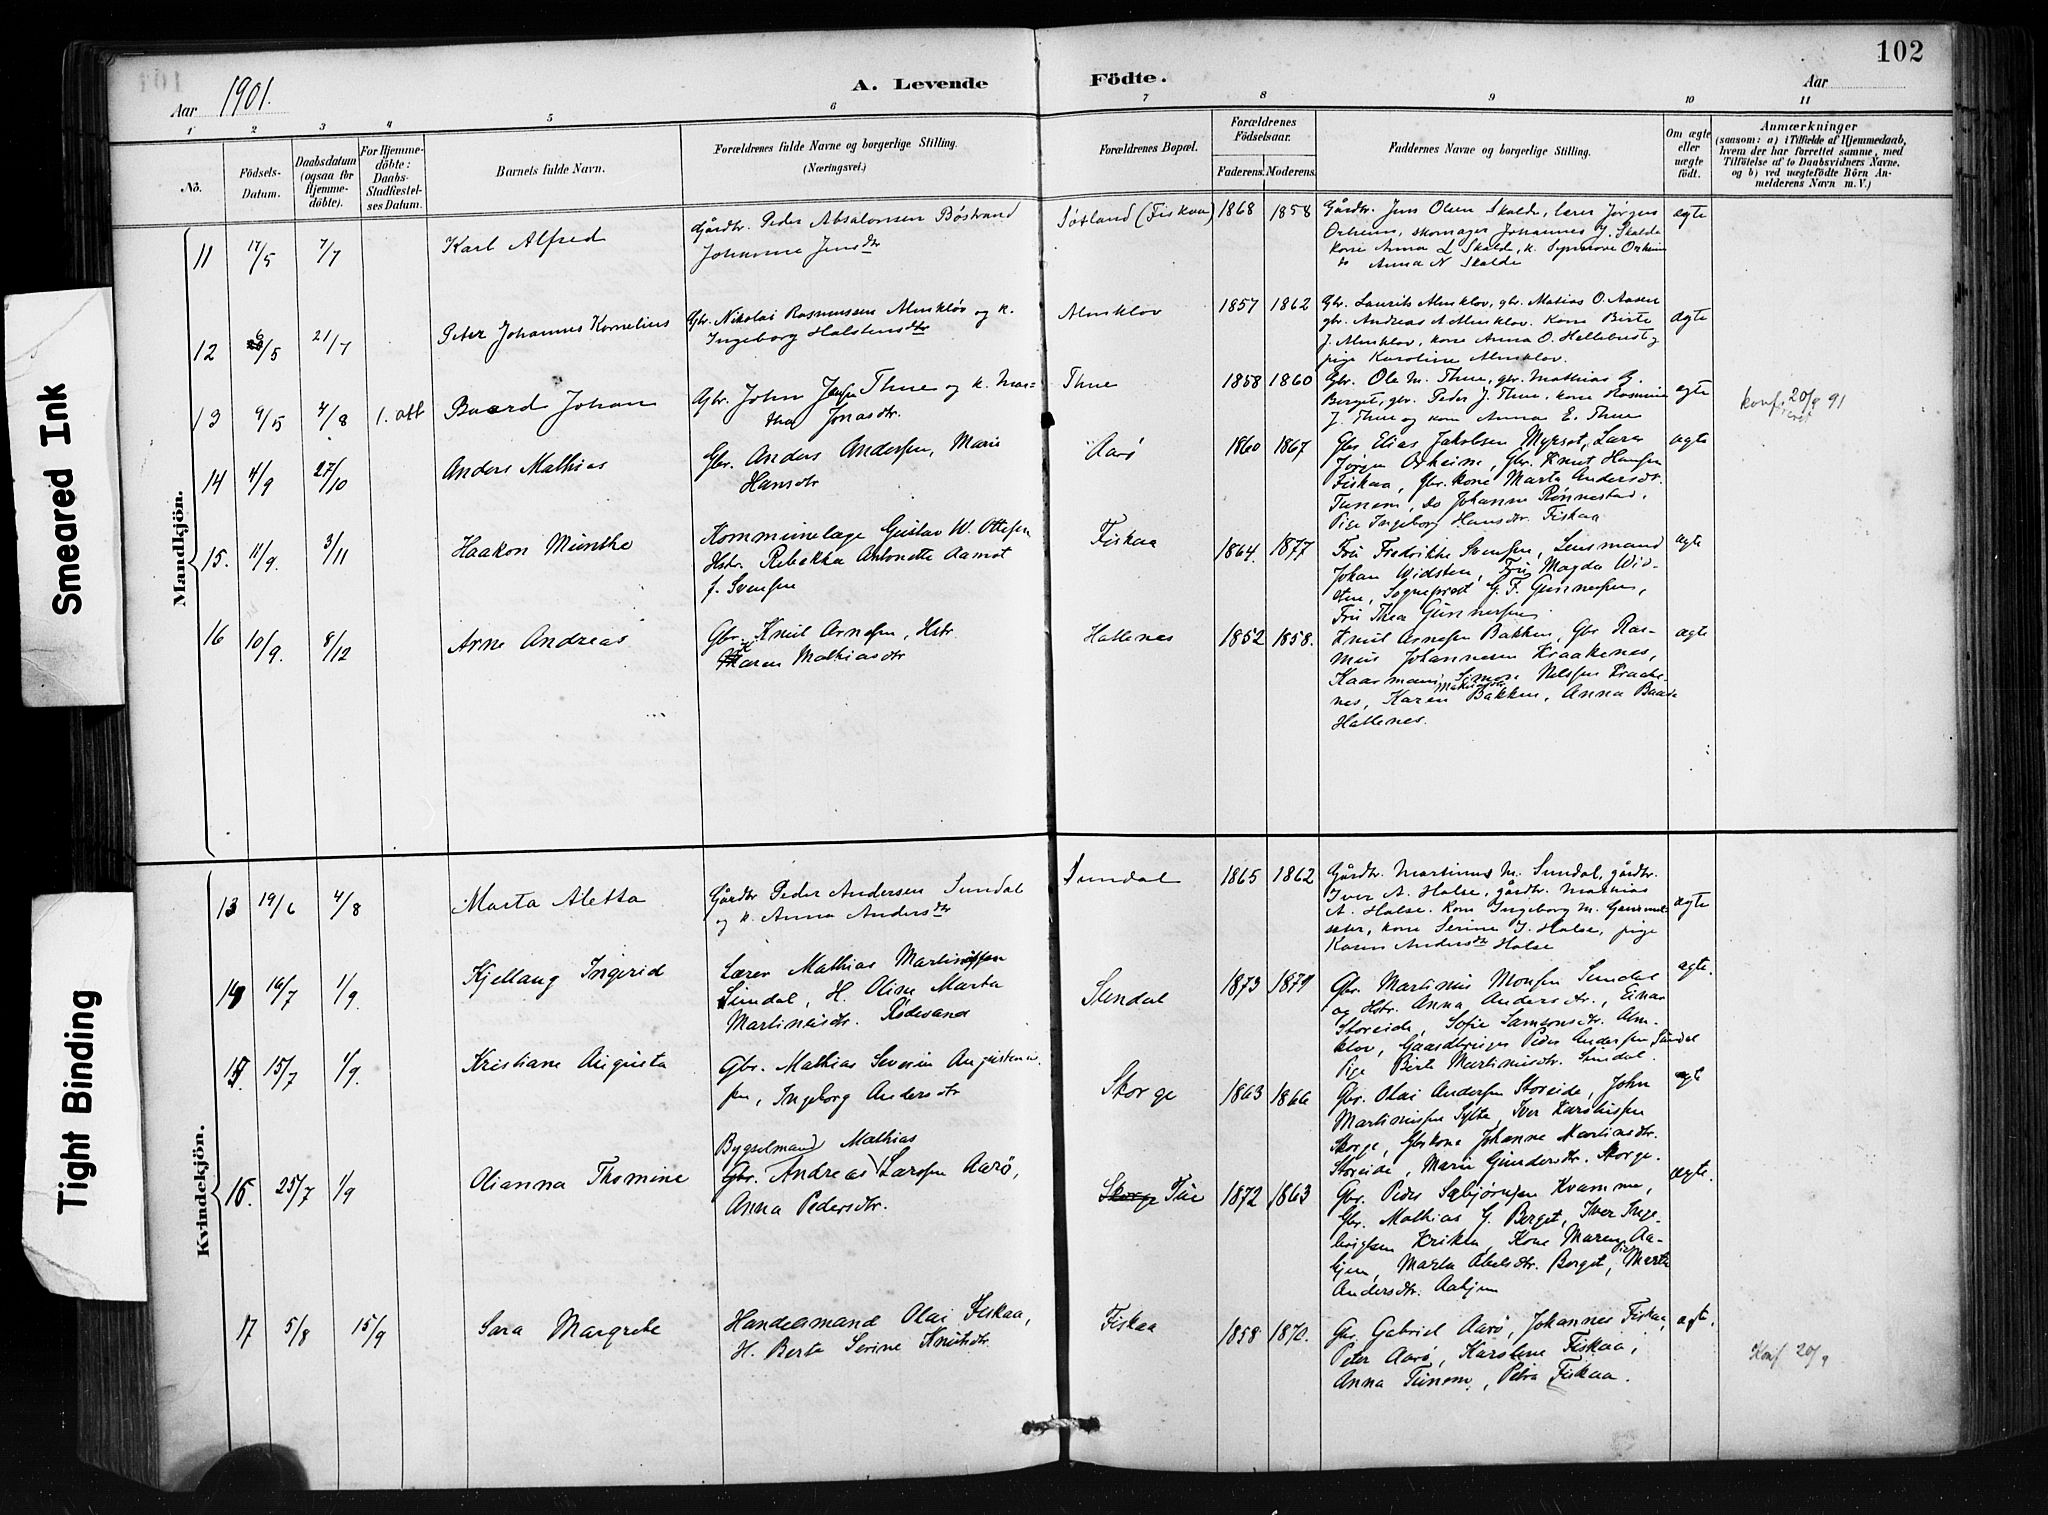 102
Aar 1901.
A. Levende Födte.
Aar
1 2 3 4 5 6 7 8 9 10 11
No.
Födsels-
Datum.
Daabsdatum
(ogsaa for
Hjemme-
döbte).
For Hjemme-
döbte:
Daabs-
Stadfæstel-
ses Datum.
Barnets fulde Navn.
Forældrenes fulde Navne og borgerlige Stilling.
(Næringsvei.)
Forældrenes Bopæl.
Forældrenes
Födselsaar.
Faderens. Moderens.
Faddernes Navne og borgerlige Stilling.
Om ægte
eller
uægte
födt.
Anmærkninger
(saasom: a) i Tilfælde af Hjemmedaab,
hvem der har forrettet samme, med
Tilföielse af to Daabsvidners Navne,
og b) ved uægtefödte Börn An-
melderens Navn m. V.)
Mandkjön.
11 17/5 7/7 Karl Alfred
Gårdbr. Peder Absalonsen Böstrand
Johanne Jensdtr
Søtland (Fiskaa) 1868 1858
Gårdbr. Jens Olsen Skalde, lærer Jørgen
Orheim, skomager Johannes J. Skalde
kone Anna L Skalde, k. Synnøve Orheim
do Anna N Skalde
ægte
12 6/5 21/7 Peter Johannes Kornelius
Gbr. Nikolai Rasmussen Almkløv og k.
Ingeborg Halstensdtr
Almklov 1857 1862
Gbr. Laurits Almklov, gbr. Matias O. Aasen
gbr. Andreas A Almklov. Kone Birte
J. Almklov, kone Anna O. Hellebust og
pige Karoline Almklov.
ægte
13 9/5 4/8 1. oktb Baard Johan
Gbr. John Thue og k. Mar-
tha Jonasdtr.
Thue 1858 1860
Gbr. Ole M. Thue, gbr. Mathias G.
Berget, gbr. Peder J. Thue, kone Rasmine
J. Thue og kone Anna E. Thue
ægte
konf. 20/9 91
14 4/9 27/10 Anders Mathias
Gbr. Anders Andersen, Marie
Hansdtr
Aarø 1860 1867
Gbr Elias Jakobsen Myrset, Lærer
Jørgen Orheim, Gbr. Knut Hansen
Fiskaa, Gbr. kone Marta Andersdtr.
Tunem, Do Johanne Rønnestad,
Pige Ingeborg Hansdtr. Fiskaa
ægte
15. 11/9. 3/11 Haakon Munthe
Kommunelæge Gustav W. Ottesen
Hstr. Rebekka Antonette Aamot
f. Svensen
Fiskaa 1864. 1877
Fru Fredrikke Svensen, Lensmand
Johan Widsten, Fru Magda Wid-
sten, Sogneprest G. F. Gunnersen,
Fru Thea Gunnersen
ægte
16 10/9. 8/12 Arne Andreas
Gbr. Knut Arnesen, Hstr.
Karen Mathiasdtr
Hallenes 1852 1858.
Knut Arnesen Bakken, Gbr Ras-
mus Johannesen Kraakenes,
Kaarmann, Simon Nelssen Kraake-
nes, Karen Bakken, Anna Baade
Hallenes.
ægte
Kvindekjön.
13 19/6 4/8 Marta Aletta
Gårdbr Peder Andersen Sundal
og k. Anna Andersdtr
Sundal 1865 1862
Gårdbr. Martinus M. Sundal, gårdbr.
Iver A. Halse, gårdbr. Mathias
A. Halse. kone Ingeborg M. Gammel-
sæter, kone Serine I. Halse, pige
Karen Andersdtr Halse
ægte
14 16/7 1/9 Kjellaug Ingerid
Lærer Mathias Martinussen
Sundal, H. Oline Marta
Martinusdtr. Rødesand
Sundal 1873 1879
Gbr. Martinus Monsen Sundal
og Hstr. Anna Andersdtr., Einar
Storeide, Sofie Samsonsdtr. Alm-
klov, Gaardbruger Peder Andersen Sundal
Pige Birte Martinusdtr. Sundal.
ægte.
15. 15/7 1/9. Kristiane Augusta
Gbr. Mathias Severin Augustinu-
sen, Ingeborg Andersdtr
Skorge 1863 1866
Gbr. Olai Andersen Storeide, John
Martinussen Sylte, Iver Karolussen
Skorge, Gbrkone Johanne Martinsdtr.
Storeide, Marie Gundersdtr. Skorge.
ægte
16. 25/7 1/9 Olianna Thomine
Bygselmand Mathias
Gbr. Andreas Larssen Aarø,
Anna Pedersdtr.
Skorge Tue 1872 1863
Gbr. Peder Sæbjørnsen Kvamme,
Gbr. Mathias G. Berget, Iver Inge-
brigtsen Krikla, Kone Maren Aa-
hjem, Marta Abelsdtr. Berget, Pige Marte
Andersdtr. Aahjem
ægte.
17 5/8 15/9 Sara Margrete
Handelsmand Olai Fiskaa,
H. Berte Serine Knutsdtr.
Fiskaa 1858 1870.
Gbr. Gabriel Aarø, Johannes Fiskaa,
Peter Aarø, Karoline Fiskaa,
Anna Tunem, Petra Fiskaa.
ægte.
Konf 20/9
Smeared Ink
Tight Binding